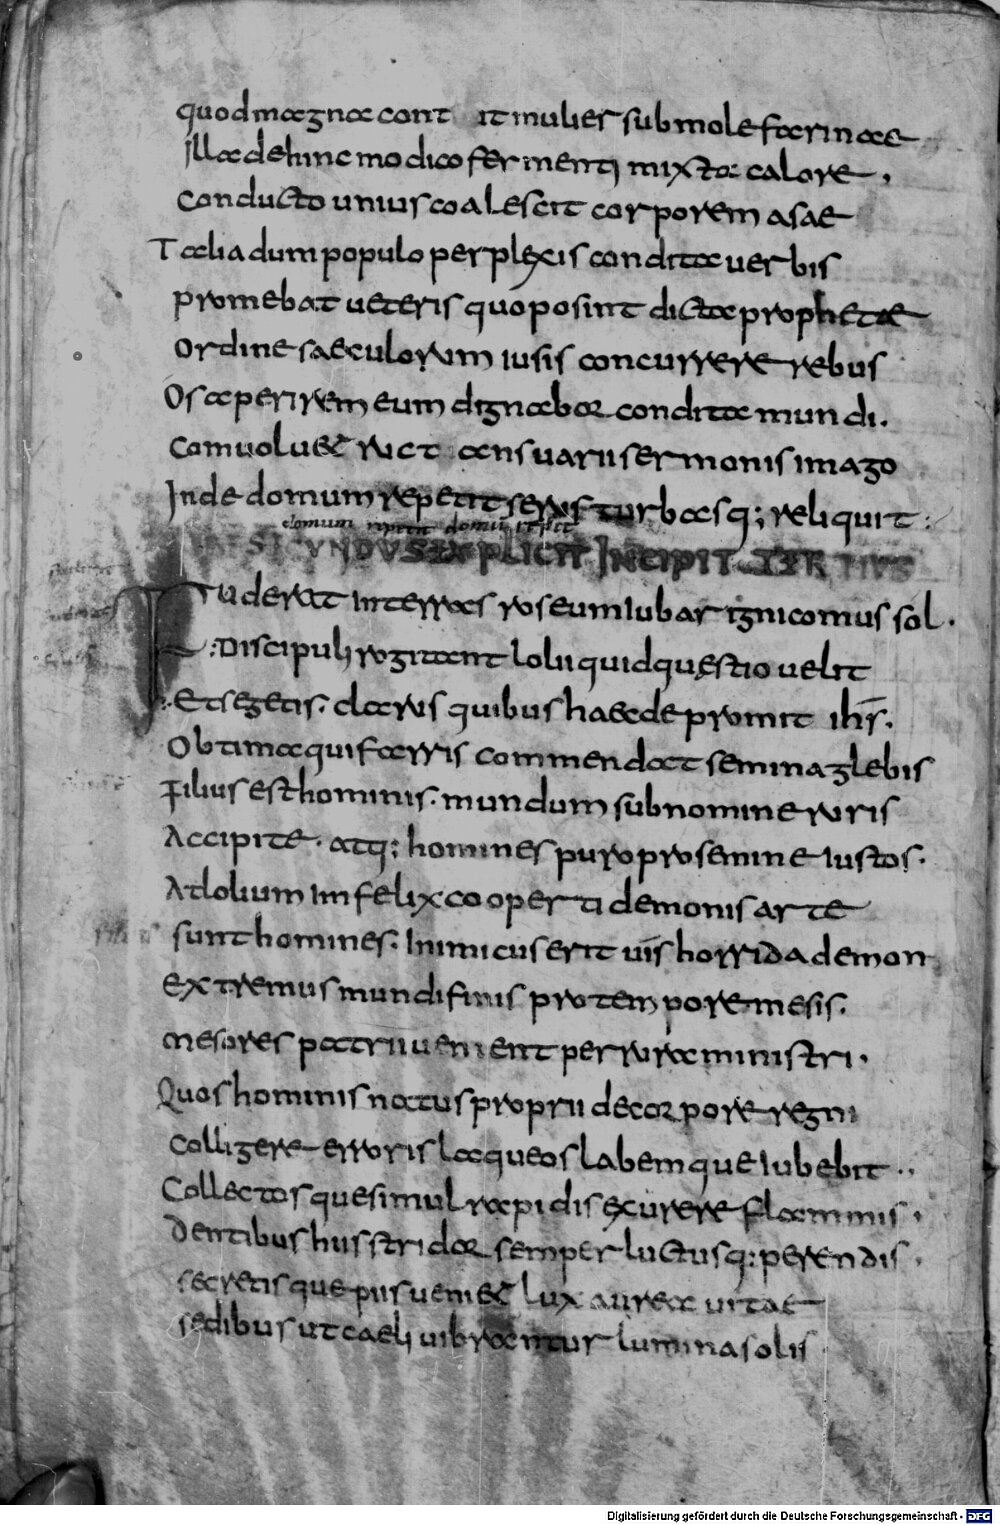 quod magna cont it mulier sub mole farinae
Illa dehinc modico fermenti mixta calore,
conducto unius coalescit corporem asae
Talia dum populo perplexis condita verbis
promebat veteris quo posint dicta prophetae
Ordine saeculorum iusis concurrere rebus
Os aperirem eum dignabar condita mundi.
comvoluet ruct ansuarii sermonis imago
Inde domum repetit serus turbasq; reliquit:
domum repetit domū repetit
SICUNDUS EXPLICIT INCIPIT TERTIUS
Fuderat in terras roseum iubar ignicomus sol.
:Discipuli rogitant lolii quid quęstio velit
:Et segetis. clarus quibus haec depromit ihs̄.
Obtima qui farris commendat semina glebis
Filius est hominis. mundum sub nomine ruris
Accipite. atq; homines puro pro semine iustos.
At lolium imfelix cooperti demonis arte
sunt homines. Inimicus erit uīs horrida demon
extremus mundi finis pro tempore mesis.
mesores patrii venient per rura ministri.
Quos hominis natus proprii decorpore regni
colligere erroris laqueos labemque iubebit..
Collectosque simul rapidis ęcurere flammis.
Dentibus hiis stridor semper luctusq: perendis.
secretisque piis veniet lux aurea vitae
sedibus ut caeli vibrantur lumina solis
Digitalisierung gefördert durch die Deutsche Forschungsgemeinschaft - DFG